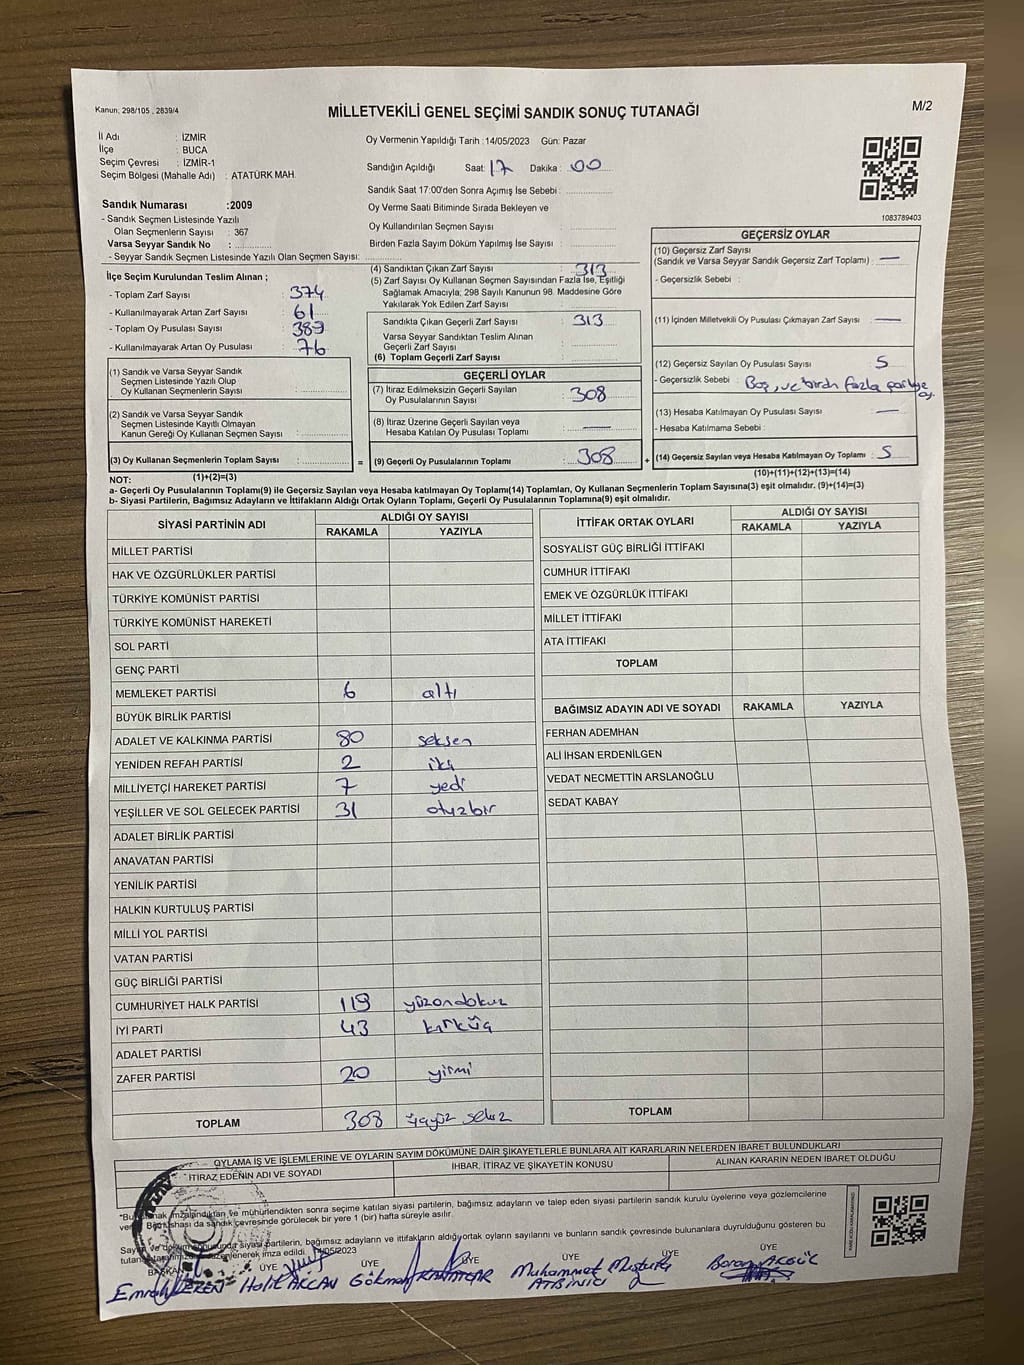 Kanun: 298/105 , 2839/4
MİLLETVEKİLİ GENEL SEÇİMİ SANDIK SONUÇ TUTANAĞI
M/2
İl Adı : İZMİR
İlçe : BUCA
Seçim Çevresi : İZMİR-1
Seçim Bölgesi (Mahalle Adı) : ATATÜRK MAH.
Sandık Numarası :2009
- Sandık Seçmen Listesinde Yazılı
Olan Seçmenlerin Sayısı : 367
Varsa Seyyar Sandık No :
- Seyyar Sandık Seçmen Listesinde Yazılı Olan Seçmen Sayısı:
Oy Vermenin Yapıldığı Tarih :14/05/2023 Gün: Pazar
Sandığın Açıldığı Saat: 17 Dakika : 00
Sandık Saat 17:00'den Sonra Açımış İse Sebebi :
Oy Verme Saati Bitiminde Sırada Bekleyen ve
Oy Kullandırılan Seçmen Sayısı :
Birden Fazla Sayım Döküm Yapılmış İse Sayısı :
1083789403
İlçe Seçim Kurulundan Teslim Alınan ;
- Toplam Zarf Sayısı : 374
- Kullanılmayarak Artan Zarf Sayısı : 61
- Toplam Oy Pusulası Sayısı : 389
- Kullanılmayarak Artan Oy Pusulası : 76
(1) Sandık ve Varsa Seyyar Sandık
Seçmen Listesinde Yazılı Olup
Oy Kullanan Seçmenlerin Sayısı :
(2) Sandık ve Varsa Seyyar Sandık
Seçmen Listesinde Kayıtlı Olmayan
Kanun Gereği Oy Kullanan Seçmen Sayısı :
(3) Oy Kullanan Seçmenlerin Toplam Sayısı :
(4) Sandıktan Çıkan Zarf Sayısı : 313
(5) Zarf Sayısı Oy Kullanan Seçmen Sayısından Fazla İse, Eşitliği
Sağlamak Amacıyla; 298 Sayılı Kanunun 98. Maddesine Göre
Yakılarak Yok Edilen Zarf Sayısı :
Sandıkta Çıkan Geçerli Zarf Sayısı : 313
Varsa Seyyar Sandıktan Teslim Alınan
Geçerli Zarf Sayısı :
(6) Toplam Geçerli Zarf Sayısı :
GEÇERLİ OYLAR
(7) İtiraz Edilmeksizin Geçerli Sayılan
Oy Pusulalarının Sayısı : 308
(8) İtiraz Üzerine Geçerli Sayılan veya
Hesaba Katılan Oy Pusulası Toplamı : —
= (9) Geçerli Oy Pusulalarının Toplamı : 308 +
GEÇERSİZ OYLAR
(10) Geçersiz Zarf Sayısı
(Sandık ve Varsa Seyyar Sandık Geçersiz Zarf Toplamı) : —
- Geçersizlik Sebebi :
(11) İçinden Milletvekili Oy Pusulası Çıkmayan Zarf Sayısı : —
(12) Geçersiz Sayılan Oy Pusulası Sayısı : 5
- Geçersizlik Sebebi : Boş, ve birden fazla partiye oy.
(13) Hesaba Katılmayan Oy Pusulası Sayısı : —
- Hesaba Katılmama Sebebi :
(14) Geçersiz Sayılan veya Hesaba Katılmayan Oy Toplamı : 5
NOT: (1)+(2)=(3)
(10)+(11)+(12)+(13)=(14)
a- Geçerli Oy Pusulalarının Toplamı(9) ile Geçersiz Sayılan veya Hesaba katılmayan Oy Toplamı(14) Toplamları, Oy Kullanan Seçmenlerin Toplam Sayısına(3) eşit olmalıdır. (9)+(14)=(3)
b- Siyasi Partilerin, Bağımsız Adayların ve İttifakların Aldığı Ortak Oyların Toplamı, Geçerli Oy Pusulalarının Toplamına(9) eşit olmalıdır.
SİYASİ PARTİNİN ADI ALDIĞI OY SAYISI
RAKAMLA YAZIYLA
MİLLET PARTİSİ
HAK VE ÖZGÜRLÜKLER PARTİSİ
TÜRKİYE KOMÜNİST PARTİSİ
TÜRKİYE KOMÜNİST HAREKETİ
SOL PARTİ
GENÇ PARTİ
MEMLEKET PARTİSİ 6 altı
BÜYÜK BİRLİK PARTİSİ
ADALET VE KALKINMA PARTİSİ 80 seksen
YENİDEN REFAH PARTİSİ 2 iki
MİLLİYETÇİ HAREKET PARTİSİ 7 yedi
YEŞİLLER VE SOL GELECEK PARTİSİ 31 otuzbir
ADALET BİRLİK PARTİSİ
ANAVATAN PARTİSİ
YENİLİK PARTİSİ
HALKIN KURTULUŞ PARTİSİ
MİLLİ YOL PARTİSİ
VATAN PARTİSİ
GÜÇ BİRLİĞİ PARTİSİ
CUMHURİYET HALK PARTİSİ 119 yüzondokuz
İYİ PARTİ 43 kırküç
ADALET PARTİSİ
ZAFER PARTİSİ 20 yirmi
TOPLAM 308 üçyüz sekiz
İTTİFAK ORTAK OYLARI ALDIĞI OY SAYISI
RAKAMLA YAZIYLA
SOSYALİST GÜÇ BİRLİĞİ İTTİFAKI
CUMHUR İTTİFAKI
EMEK VE ÖZGÜRLÜK İTTİFAKI
MİLLET İTTİFAKI
ATA İTTİFAKI
TOPLAM
BAĞIMSIZ ADAYIN ADI VE SOYADI RAKAMLA YAZIYLA
FERHAN ADEMHAN
ALİ İHSAN ERDENİLGEN
VEDAT NECMETTİN ARSLANOĞLU
SEDAT KABAY
TOPLAM
OYLAMA İŞ VE İŞLEMLERİNE VE OYLARIN SAYIM DÖKÜMÜNE DAİR ŞİKAYETLERLE BUNLARA AİT KARARLARIN NELERDEN İBARET BULUNDUKLARI
İTİRAZ EDENİN ADI VE SOYADI İHBAR, İTİRAZ VE ŞİKAYETİN KONUSU ALINAN KARARIN NEDEN İBARET OLDUĞU
imzalandıktan ve mühürlendikten sonra seçime katılan siyasi partilerin, bağımsız adayların ve talep eden siyasi partilerin sandık kurulu üyelerine veya gözlemcilerine
da sandık çevresinde görülecek bir yere 1 (bir) hafta süreyle asılır.
siyasi partilerin, bağımsız adayların ve ittifakların aldığıortak oyların sayılarını ve bunların sandık çevresinde bulunanlara duyrulduğunu gösteren bu
düzenlenerek imza edildi. 14/05/2023
BAŞKAN ÜYE ÜYE ÜYE ÜYE ÜYE ÜYE
Halil AKCAN Gökmen Muhammet Mustafa Baran AKGÜL